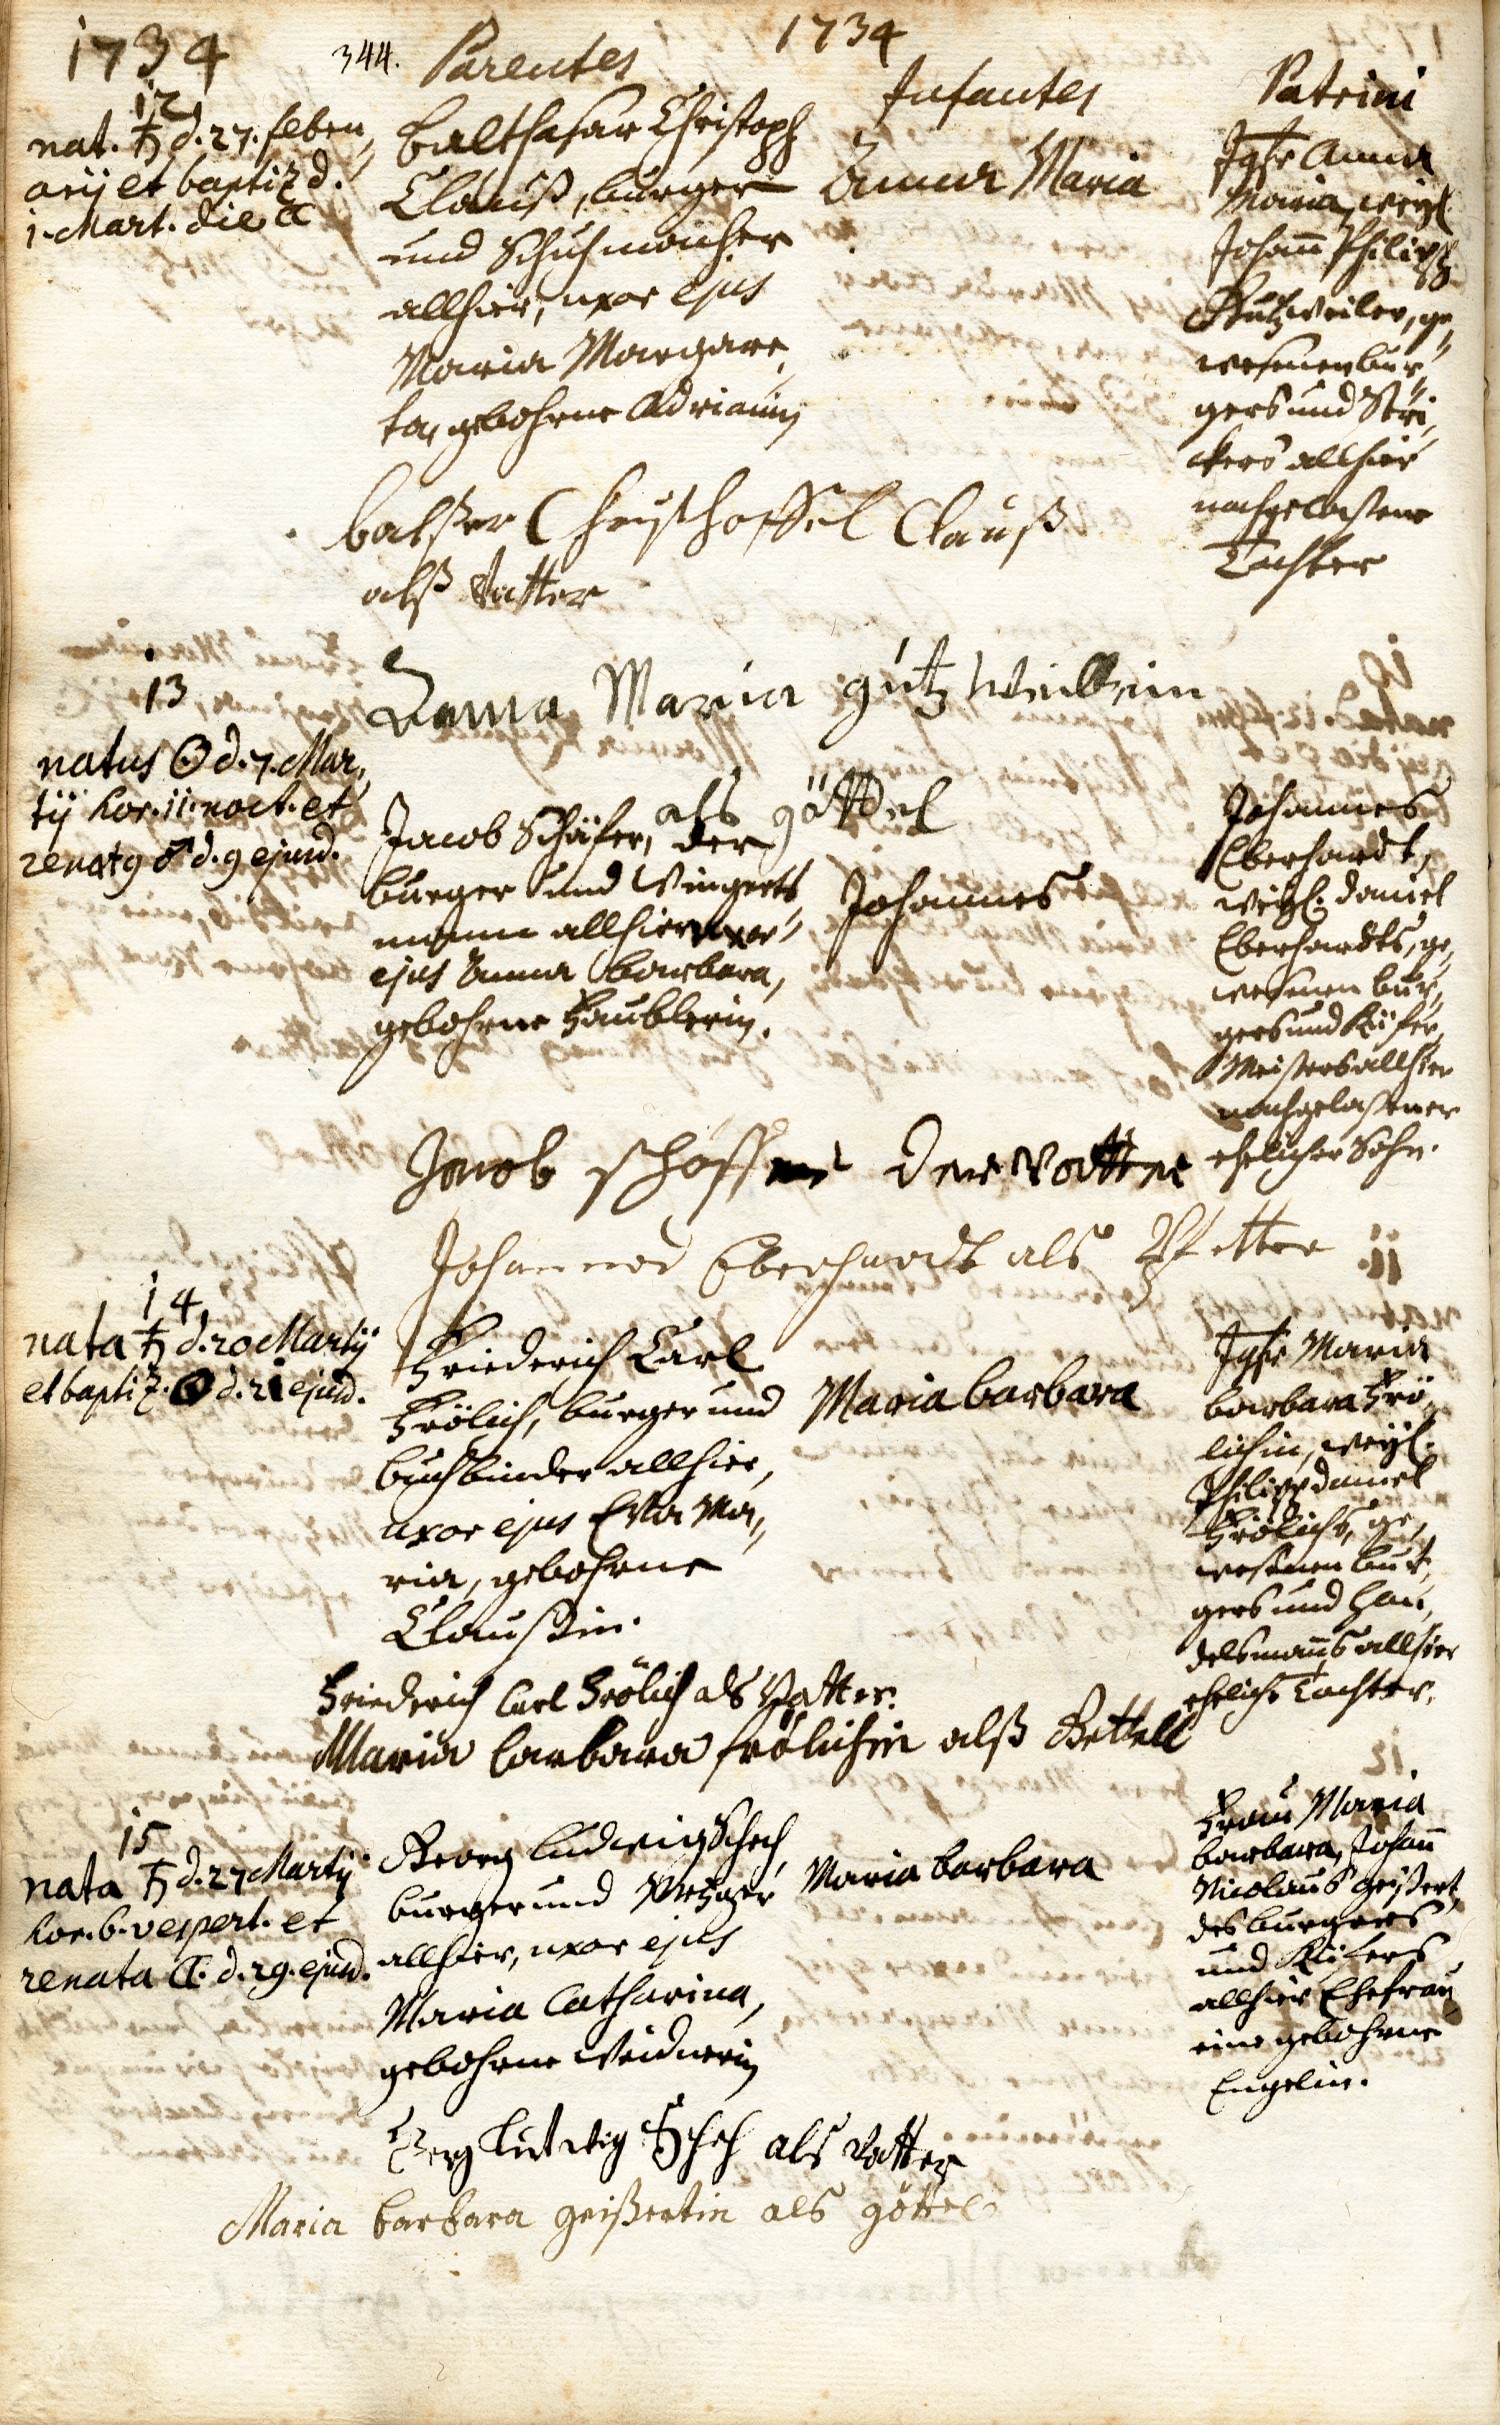 1734
344.
1734
Parentes
Infantes
Patrini
12
nat. ♄ d. 27. Febru,
arij et baptiz d.
1. Mart. die ☾
Balthasar Christoph
Clauß, burger
und Schuhmacher
allhier, uxor ejus
Maria Margare,
ta, gebohrne Adrianin
Anna Maria
Jgfr Anna
Maria, weyl.
Johann Philipp
Gützweiler, ge,
wesenen bur,
gers und Stri,
ckers allhier
nachgelaßene
Tochter
balßer Christhoffel Clauß
alß Vatter
Anna Maria gützweillerin
als göttel
13
natus ☉ d. 7. Mar,
tij hor. 11. noct. et
renat9 ♂ d. 9 ejusd.
Jacob Schäfer, der
burger und Wingerts
mann allhier uxor
ejus Anna Barbara,
gebohrne Häublerin.
Johannes
Johannes
Eberhardt,
weyl. Daniel
Eberhardts, ge,
wesenen bur,
gers und Küfer,
Meisters allhier
nachgelaßener
ehelicher Sohn.
Jacob schöffer der vatter
Johannes Eberhardt als Pfetter
14
nata ♄ d. 20 Martij
et baptiz. ☉ d. 21 ejusd.
Friederich Carl
Frölich, burger und
buchbinder allhier,
uxor ejus Eva Ma,
ria, gebohrne
Claußin.
Maria Barbara
Jgfr Maria
Barbara Frö,
lichin, weyl.
Philipp Daniel
Frölichs, ge,
wesenen bur,
gers und Han,
delsmanns allhier
eheliche Tochter.
Friederich Carl Frölich als Vatter.
Maria barbara frölichin alß Gettell
15
nata ♄ d. 27 Martij
hor. 6. vespert. et
renata ☾. d. 29. ejusd.
Georg Ludwig Schech,
burger und Metzger
allhier, uxor ejus
Maria Catharina,
gebohrne Weidnerin
Maria Barbara
Frau Maria
Barbara, Johann
Nicolaus Geißert,
des burgers
und Küfers
allhier Ehefrau
eine gebohrne
Engelin.
Gerg Lutwig Schech als vatter
Maria barbara geißertin als göttel